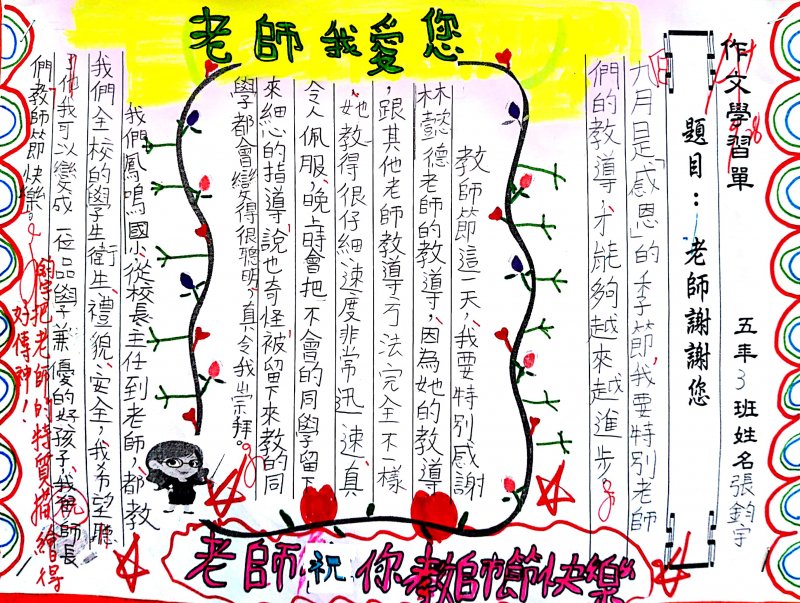 老師我愛您
作文學習單
題目：老師謝謝您
五年3班姓名張鈞宇
九月是「感恩」的季節，我要特別老師
們的教導，才能夠越來越進步。
教師節這一天，我要特別感謝
林懿德老師的教導，因為她的教導
，跟其他老師教導方法完全不一樣
，她教得很仔細，速度非常迅速，真
令人佩服，晚上時會把不會的同學留下
來細心的指導，說也奇怪，被留下來教的同
學都會變得很聰明，真令我崇拜。
我們鳳鳴國小，從校長、主任到老師，都教
我們全校的學生衛生、禮貌、安全，我希望聽
我可以變成一位品學兼優的好孩子，我祝師長
們「教師節快樂」。
把老師的特質描繪得
好傳神！
老師祝你教師節快樂